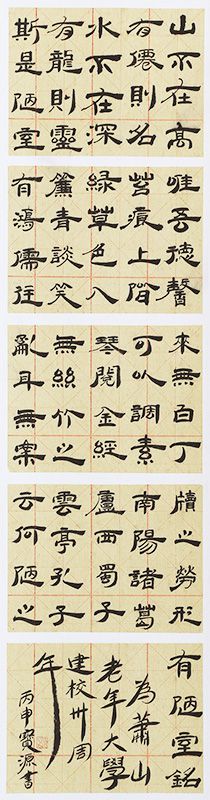 山不在高
有僊則名
水不在深
有龍則靈
斯是陋室
唯吾德馨
苔痕上階
綠草色入
簾青談笑
有鴻儒往
來無白丁
可以調素
琴閱金經
無絲竹之
亂耳無案
牘之勞形
南陽諸葛
廬西蜀子
雲亭孔子
云何陋之
有陋室銘
為蕭山
老年大學
建校卅周
年
丙申寶源書